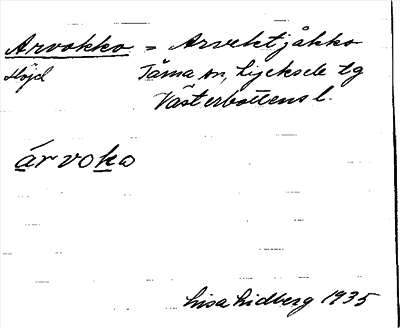 Arvokko = Arvehtjåkko
Höjd Tärna sn, Lycksele tg
Västerbottens l.
árvoko
Lisa Lidberg 1935